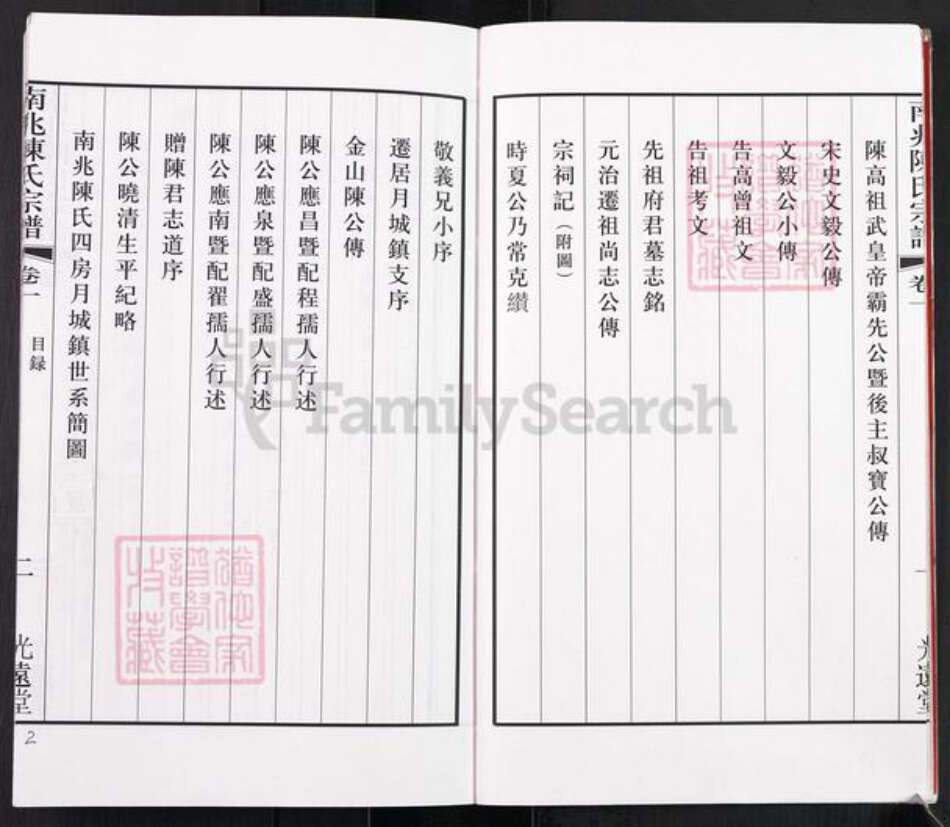 南兆陳氏宗譜
卷一
一
光遠堂
陳高祖武皇帝霸先公暨後主叔寶公傳
宋史文毅公傳
文毅公小傳
告高曾祖文
告祖考文
先祖府君墓志銘
元治遷祖尚志公傳
宗祠記（附圖）
時夏公乃常克纘
敬義兄小序
遷居月城鎮支序
金山陳公傳
陳公應昌暨配程孺人行述
陳公應泉暨配盛孺人行述
陳公應南暨配翟孺人行述
贈陳君志道序
陳公曉清生平紀略
南兆陳氏四房月城鎮世系簡圖
南兆陳氏宗譜
卷一
目録
二
光遠堂
2
FamilySearch
譜學會